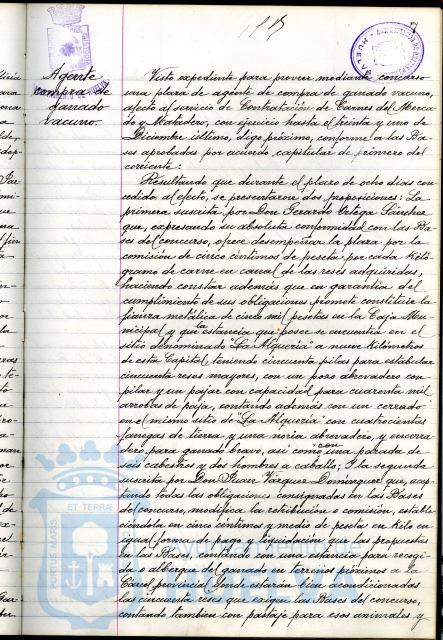 Agente
compra de
ganado
vacuno.
Visto expediente para proveer mediante concurso
una plaza de agente de compra de ganado vacuno,
afecto al servicio de Contratación de Carnes del Merca-
do y Matadero, con ejercicio hasta el treinta y uno de
Diciembre último, digo próximo, conforme a las Ba-
ses aprobadas por acuerdo capitular de primero del
corriente:
Resultando que durante el plazo de ocho días con-
cedido al efecto, se presentaron dos proposiciones: La
primera suscrita por Don Gerardo Ortega Sánchez
que, expresando su absoluta conformidad con las Ba-
ses del concurso, ofrece desempeñar la plaza por la
comisión de cinco céntimos de peseta por cada kiló-
gramo de carne en canal de las reses adquiridas,
haciendo constar además que en garantía del
cumplimiento de sus obligaciones promete constituir la
fianza metálica de cinco mil pesetas en la Caja Mu-
nicipal y que la estancia que posee se encuentra en el
sitio denominado "La Alquería" a nueve kilómetros
de esta Capital, teniendo cincuenta pilas para estabular
cincuenta reses mayores, con un pozo abrevadero con
pilar y un pajar con capacidad para cuarenta mil
arrobas de paja, contando además con un cercado
en el mismo sitio de "La Alquería" con cuatrocientas
fanegas de tierra y una noria abrevadero, y encerra-
dero para ganado bravo, así como con una parada de
seis cabestros y dos hombres a caballo; Y la segunda
suscrita por Don Juan Vázquez Domínguez que, acep-
tando todas las obligaciones consignadas en las Bases
del concurso, modifica la retribución o comisión, estable-
ciéndola en cinco céntimos y medio de peseta en kilo en
igual forma de pago y liquidación que las propuestas
en las Bases, contando con una estancia para recogi-
da o albergue del ganado en terrenos próximos a la
Cárcel provincial donde estarán bien acondicionadas
las cincuenta reses que exigen las Bases del concurso,
contando también con pastaje para esos animales y
PORTUS MARIS
ET TERRÆ